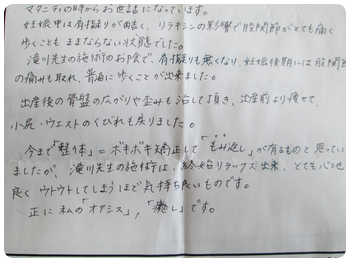 マタニティの時からお世話になっています。
妊娠中は骨盤が開き、リラキシンの影響で股関節がとても痛く
歩くこともままならない状態でした。
滝川先生の施術のお陰で、も無くなり、妊娠後期には股関節
の痛みも取れ、普通に歩くことが出来ました。
出産後の骨盤の広がりや歪みも治して頂き、出産前より痩せて、
小尻・ウエストのくびれも戻りました。
今まで「整体」=ボキボキ矯正して「もみ返し」が有るものと思ってい
ましたが、滝川先生の施術は、終始リラックス出来、とても心地
良く ウトウトしてしまうほど気持ち良いものです。
正に私の「オアシス」,「癒し」です。